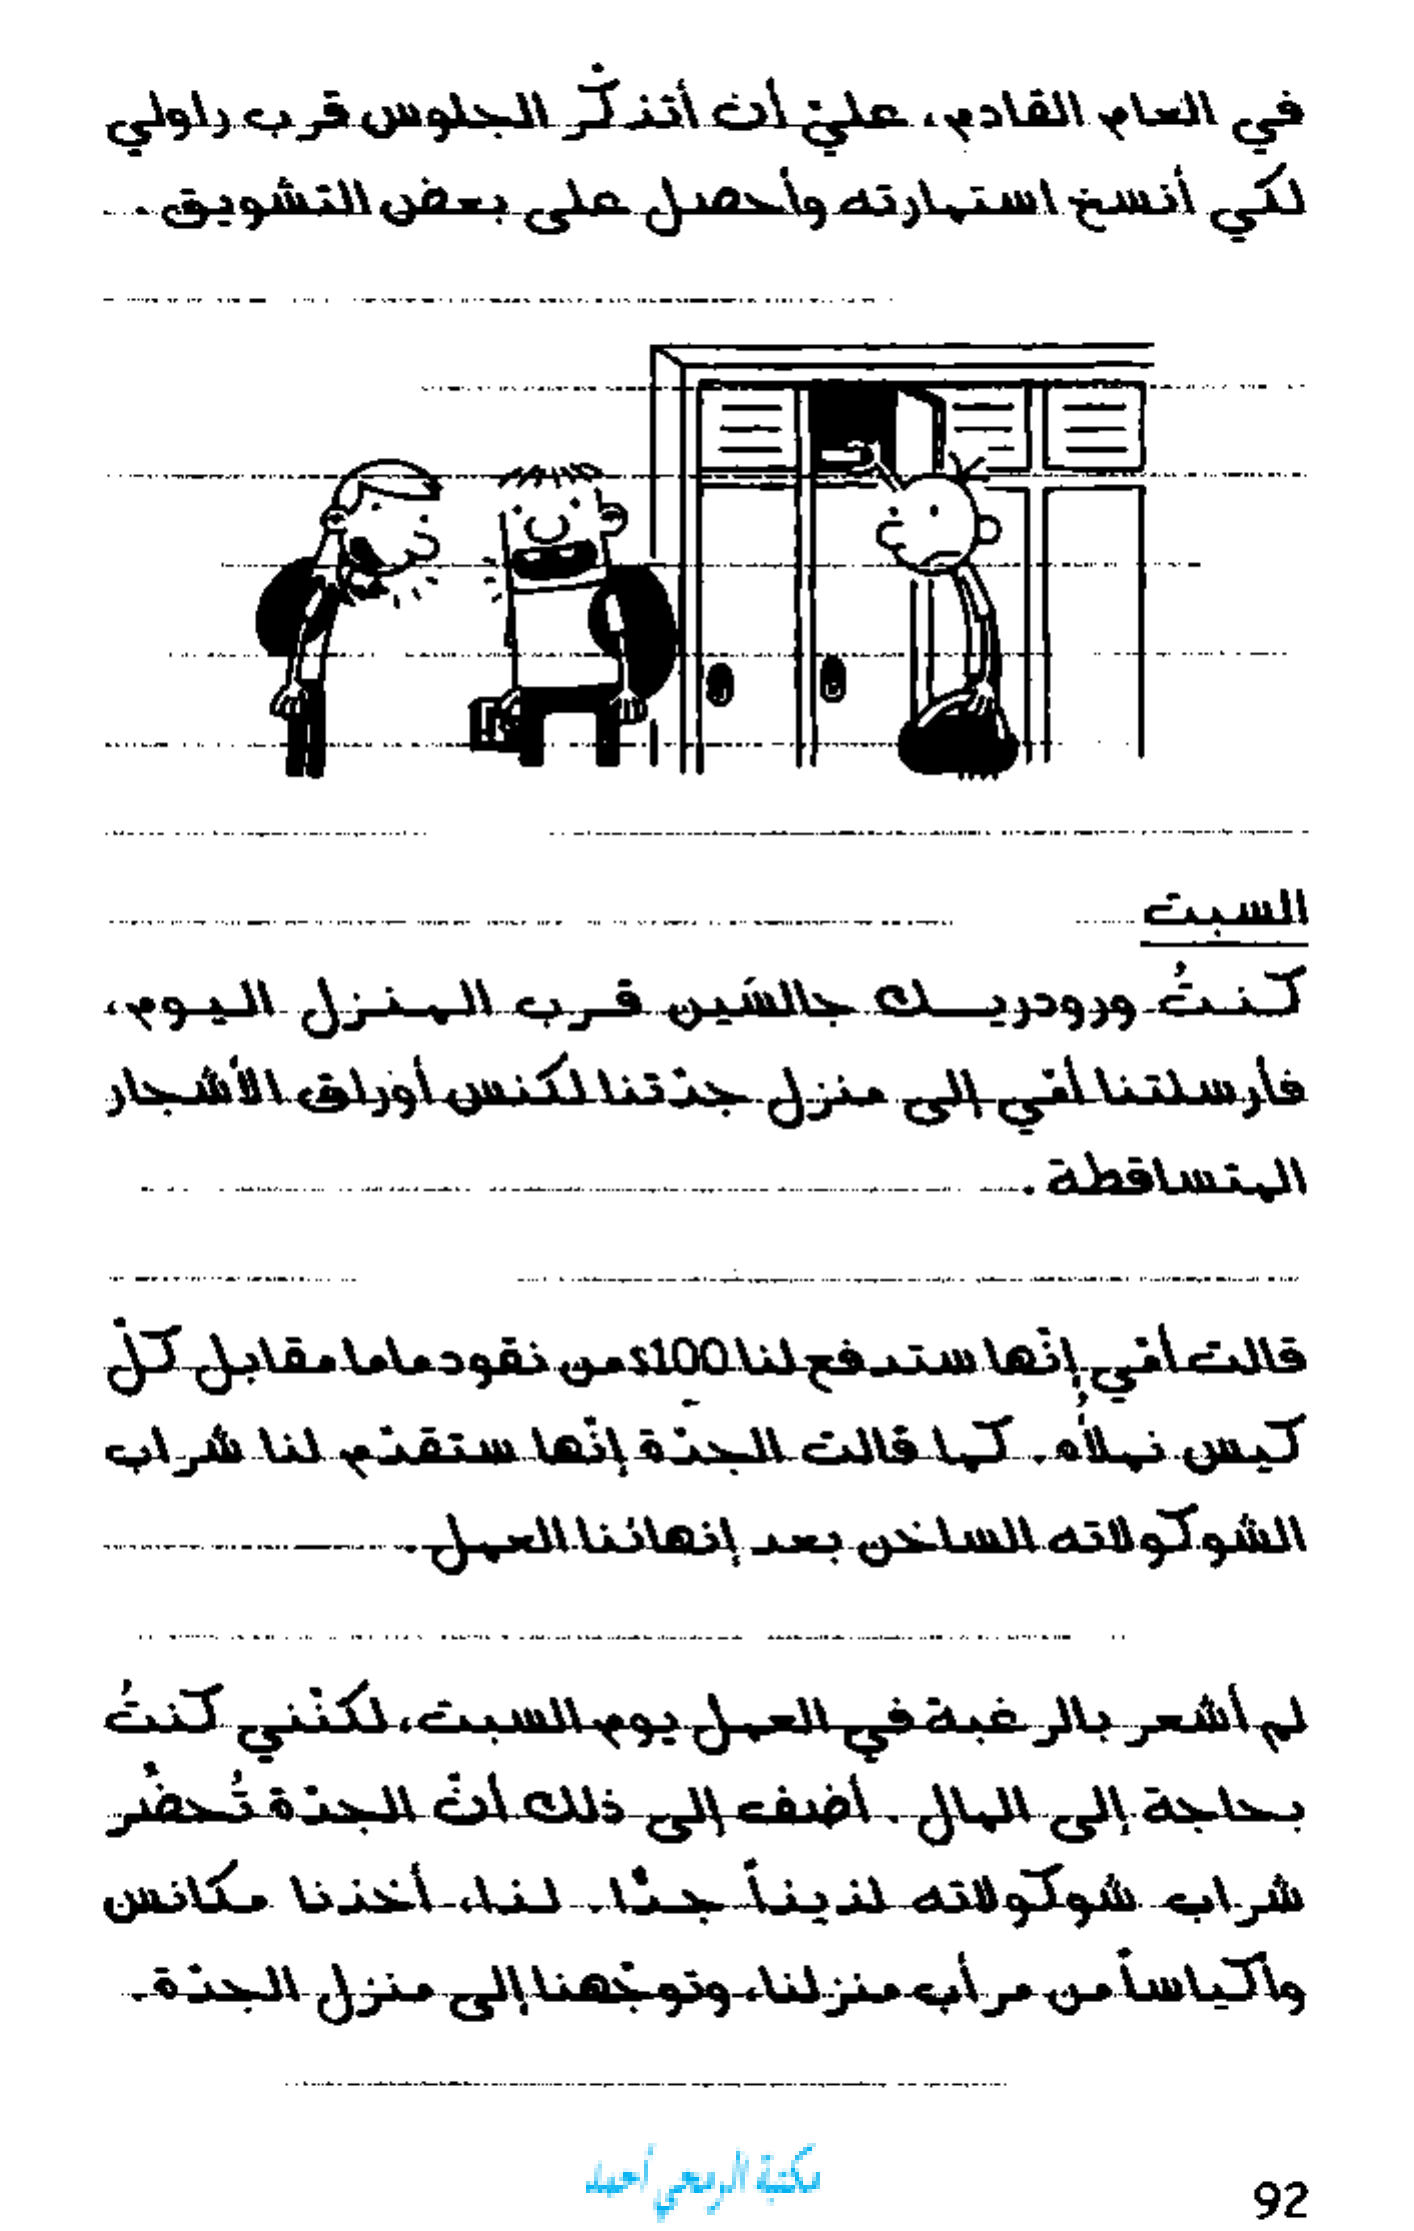 في العام القادم، عليّ أن أتذكّر الجلوس قرب راولي
لكي أنسخ استمارته وأحصل على بعض التشويق.
السبت
كنتُ ورودريك جالسَين قرب المنزل اليوم،
فأرسلتنا أمّي إلى منزل جدّتنا لكنس أوراق الأشجار
المتساقطة.
قالت أمّي إنّها ستدفع لنا 100$ من نقود ماما مقابل كلّ
كيس نملأُه. كما قالت الجدّة إنّها ستقدّم لنا شراب
الشوكولاته الساخن بعد إنهائنا العمل.
لم أشعر بالرغبة في العمل يوم السبت، لكنّني كنتُ
بحاجة إلى المال. أضف إلى ذلك أنّ الجدّة تُحضّر
شراب شوكولاته لذيذاً جدّا. لذا، أخذنا مكانس
وأكياساً من مرأب منزلنا، وتوجّهنا إلى منزل الجدّة.
مكتبة الرمحي أحمد
92